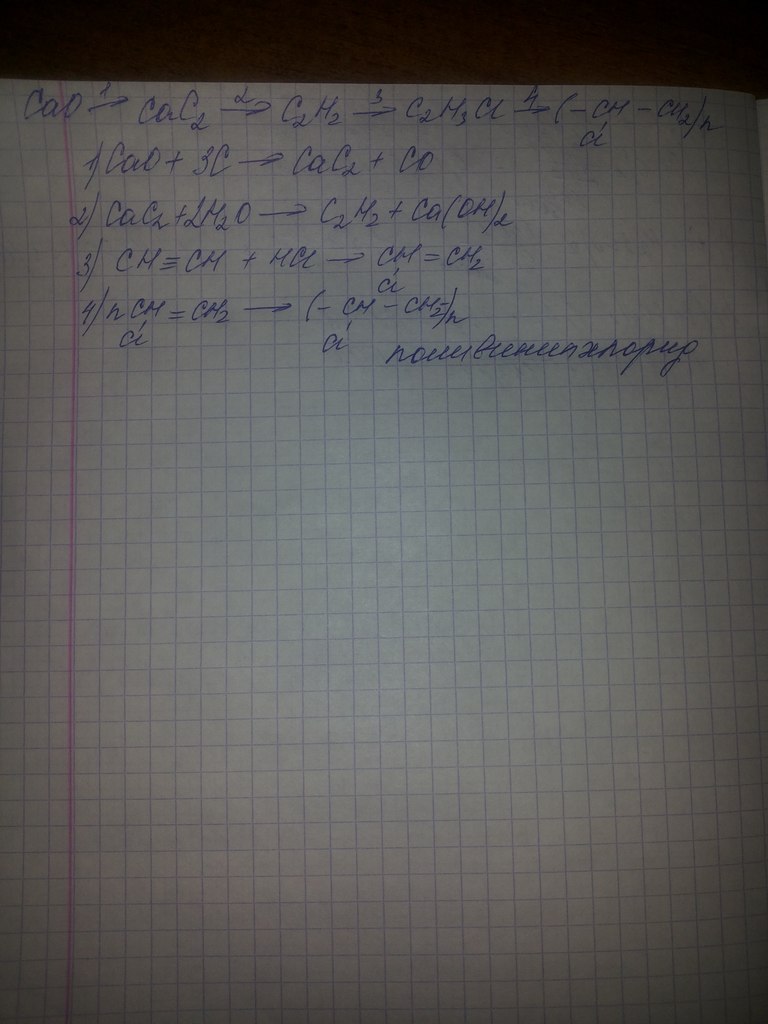 CaO →¹ CaC₂ →² C₂H₂ →³ C₂H₃Cl →⁴ (-CH-CH₂)n
Cl
1) CaO + 3C → CaC₂ + CO
2) CaC₂ + 2H₂O → C₂H₂ + Ca(OH)₂
3) CH≡CH + HCl → CH=CH₂
Cl
4) nCH=CH₂ → (-CH-CH₂-)n
Cl Cl
поливинилхлорид